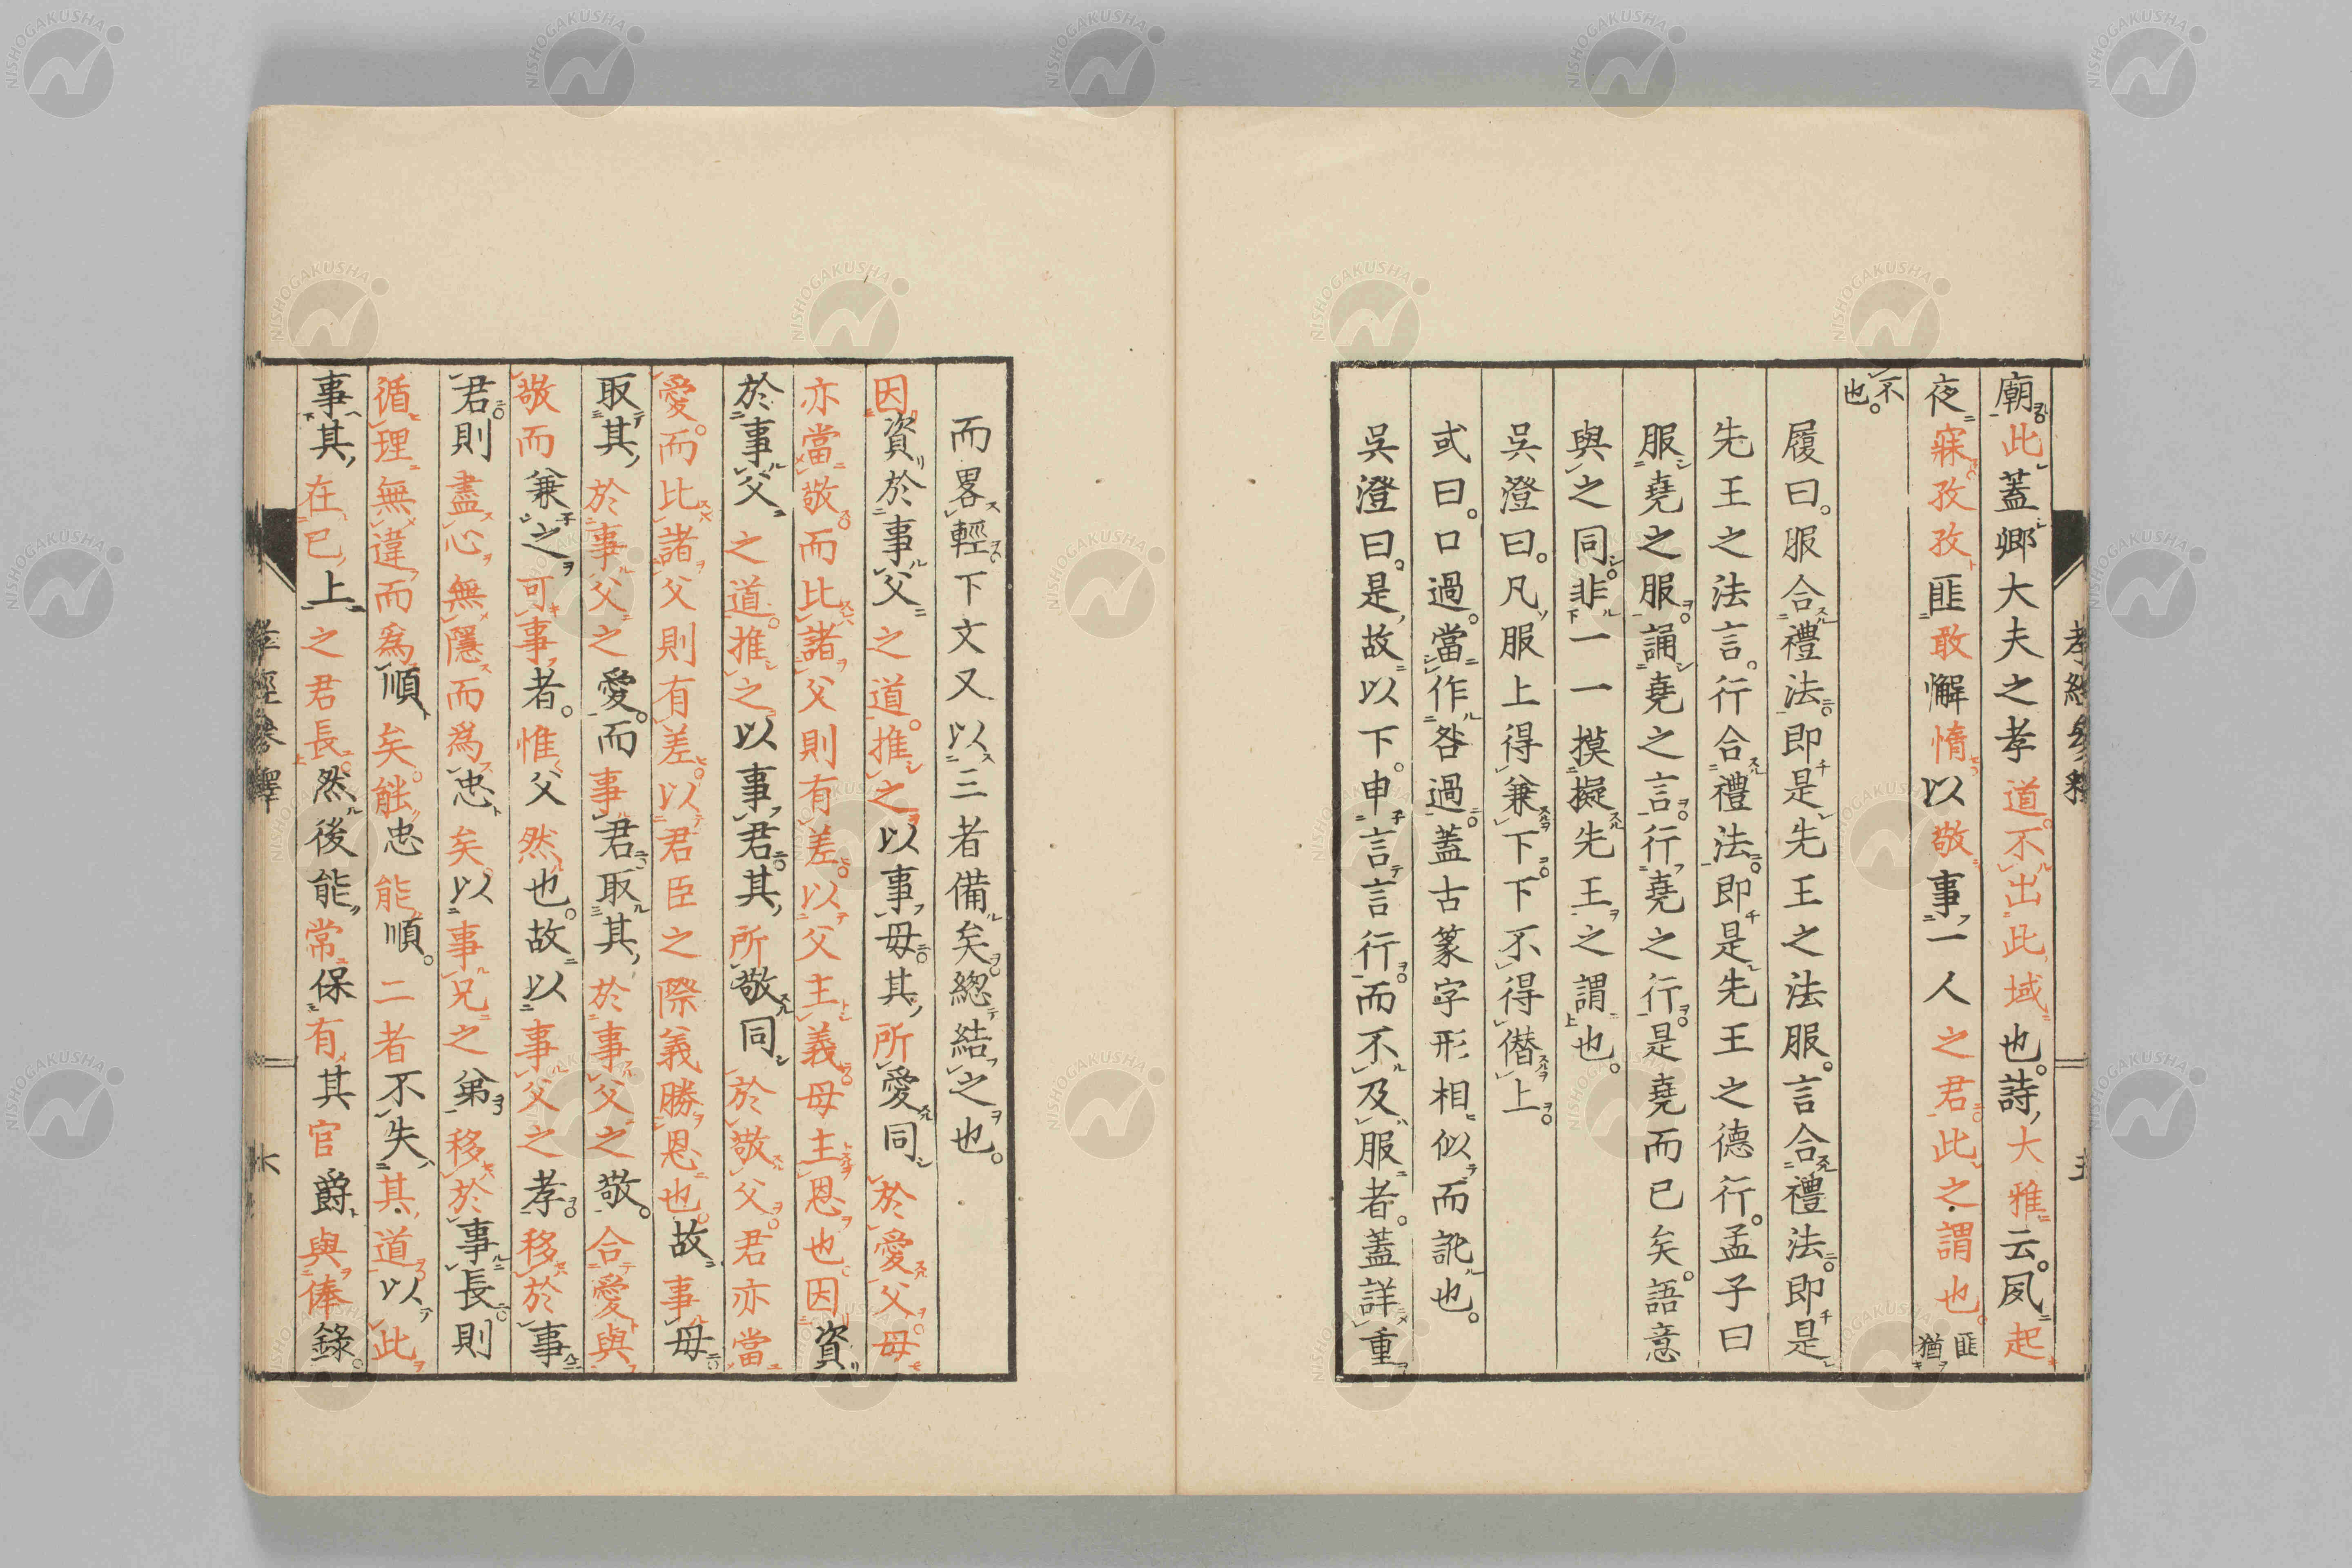 廟此蓋卿大夫之孝道不出此域也詩大雅云夙起
夜寐孜孜匪敢懈惰以敬事一人之君此之謂也匪猶
不也
履曰服合禮法即是先王之法服言合禮法即是
先王之法言行合禮法即是先王之德行孟子曰
服堯之服誦堯之言行堯之行是堯而已矣語意
與之同非一一摸擬先王之謂也
吳澄曰凡服上得兼下下不得僭上
或曰口過當作咎過蓋古篆字形相似而訛也
吳澄曰是故以下申言言行而不及服者蓋詳重
而畧輕下文又以三者備矣緫結之也
因資於事父之道推之以事母其所愛同於愛父母
亦當敬而比諸父則有差以父主義母主恩也因資
於事父之道推之以事君其所敬同於敬父君亦當
愛而比諸父則有差以君臣之際義勝恩也故事母
取其於事父之愛而事君取其於事父之敬合愛與
敬而兼之可事者惟父然也故以事父之孝移於事
君則盡心無隱而爲忠矣以事兄之弟移於事長則
循理無違而爲順矣能忠能順二者不失其道以此
事其在已上之君長然後能常保有其官爵與俸錄
孝經參釋
六
NISHOGAKUSHA